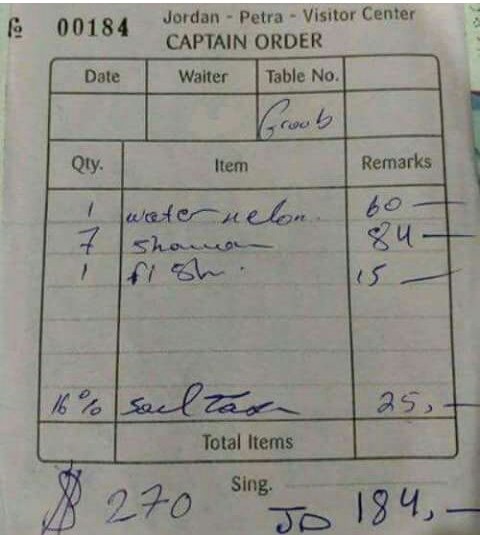 № 00184
Jordan - Petra - Visitor Center
CAPTAIN ORDER
Date Waiter Table No.
Groub
Qty. Item Remarks
1 water melon. 60 —
7 84 —
1 fish. 15 —
16% 25, —
Total Items
Sing.
$ 270 JD 184, —